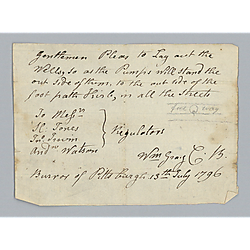 Gentlemen Pleas to Lay out the
Wells, so as the Pumps will Stand the
out Side of them, to the out Side of the
foot path Curb, in all the Streets
To Messrs
H. Jones
Irwin
Andw Watson
Regulators
Wm Gray C. B.
Burrow of Pittsburgh 13th July 1796